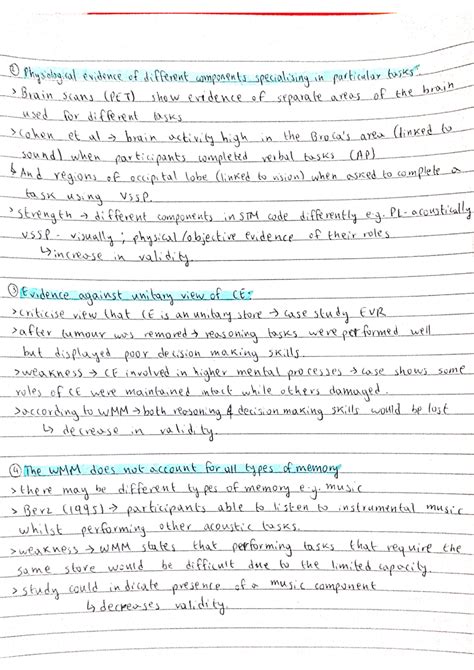 ② Physiological evidence of different components specialising in particular tasks:
> Brain scans (PET) show evidence of separate areas of the brain
used for different tasks
> Cohen et al → brain activity high in the Broca's area (linked to
sound) when participants completed verbal tasks (AP)
↳ And regions of occipital lobe (linked to vision) when asked to complete a
task using VSSP.
> strength → different components in STM code differently e.g. PL - acoustically
VSSP - visually ; physical/objective evidence of their roles
↳ increase in validity.
③ Evidence against unitary view of CE:
> criticise view that CE is an unitary store → case study EVR
> after tumour was removed → reasoning tasks were performed well
but displayed poor decision making skills.
> weakness → CE involved in higher mental processes → case shows some
roles of CE were maintained intact while others damaged.
> according to WMM → both reasoning & decision making skills would be lost
↳ decrease in validity.
④ The WMM does not account for all types of memory
> there may be different types of memory e.g. music
> Berz (1995) → participants able to listen to instrumental music
whilst performing other acoustic tasks.
> weakness → WMM states that performing tasks that require the
same store would be difficult due to the limited capacity.
> study could indicate presence of a music component
↳ decreases validity.